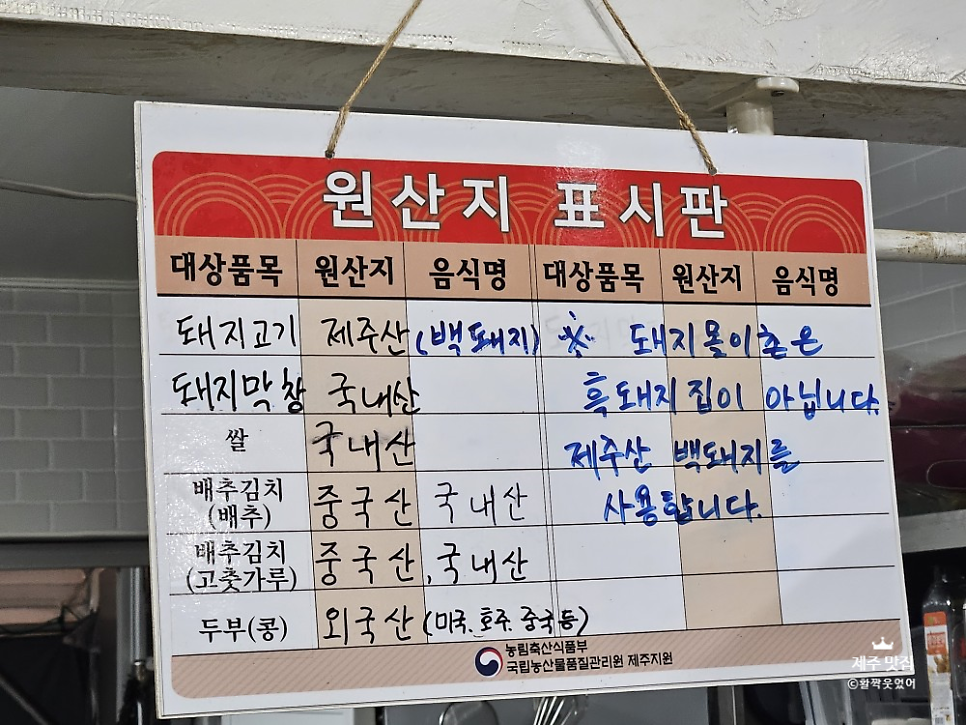 원산지 표시판
대상품목 원산지 음식명 대상품목 원산지 음식명
돼지고기 제주산 (백돼지)
돼지막창 국내산
쌀 국내산
배추김치 (배추) 중국산 국내산
배추김치 (고춧가루) 중국산, 국내산
두부(콩) 외국산 (미국. 호주. 중국 등)
※ 돼지몰이촌은
흑돼지 집이 아닙니다.
제주산 백돼지를
사용합니다.
농림축산식품부
국립농산물품질관리원 제주지원
제주 맛집
©활짝웃었어